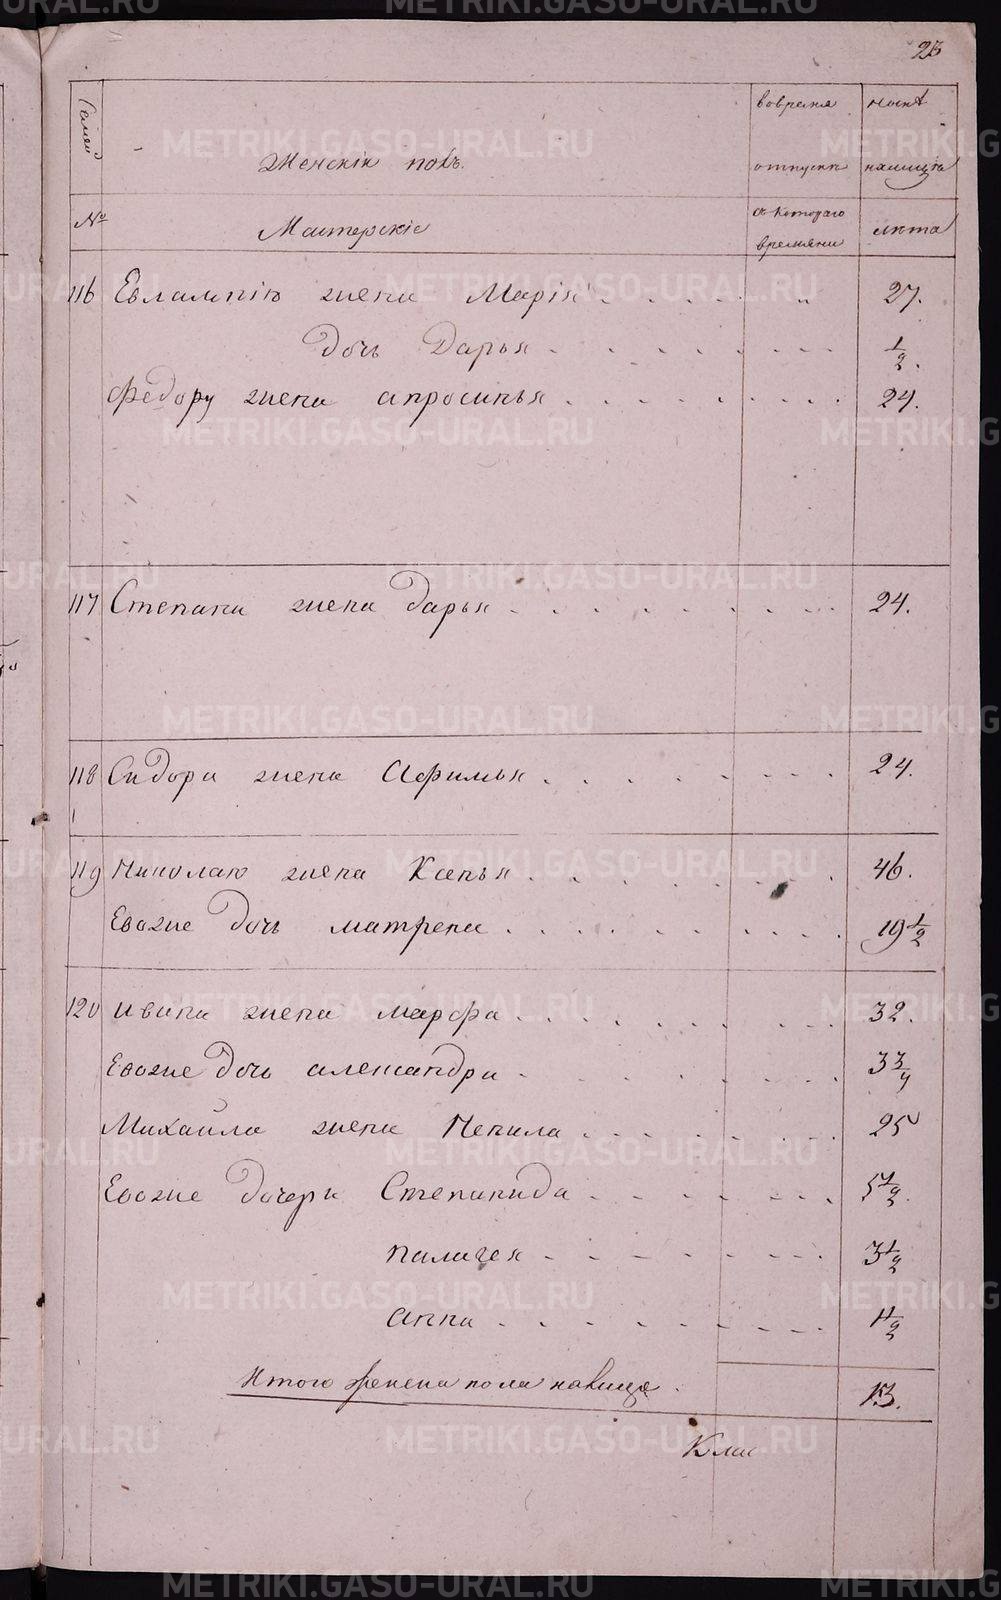 23
Семей
Женскій полъ.
вовремя
отпускѣ
нынѣ
налицѣ
№
Мастерскіе
съ котораго
времяни
лѣта
116 Евлампію жена Марія 27.
Дочь Дарья 1/2.
Федору жена апросинья 24.
117 Степана жена Дарья 24.
118 Сидора жена Афимья 24.
119 Николаю жена Ксенья 46.
Евоже Дочь матрена 19 1/2
120 ивана жена марфа 32.
Евоже Дочь александра 3 3/4
Михаила жена Ненила 25
Евоже Дочери Степанида 5 1/2.
палагея 3 1/2
анна 1 1/2
Итого женска пола налице. 13.
METRIKI.GASO-URAL.RU